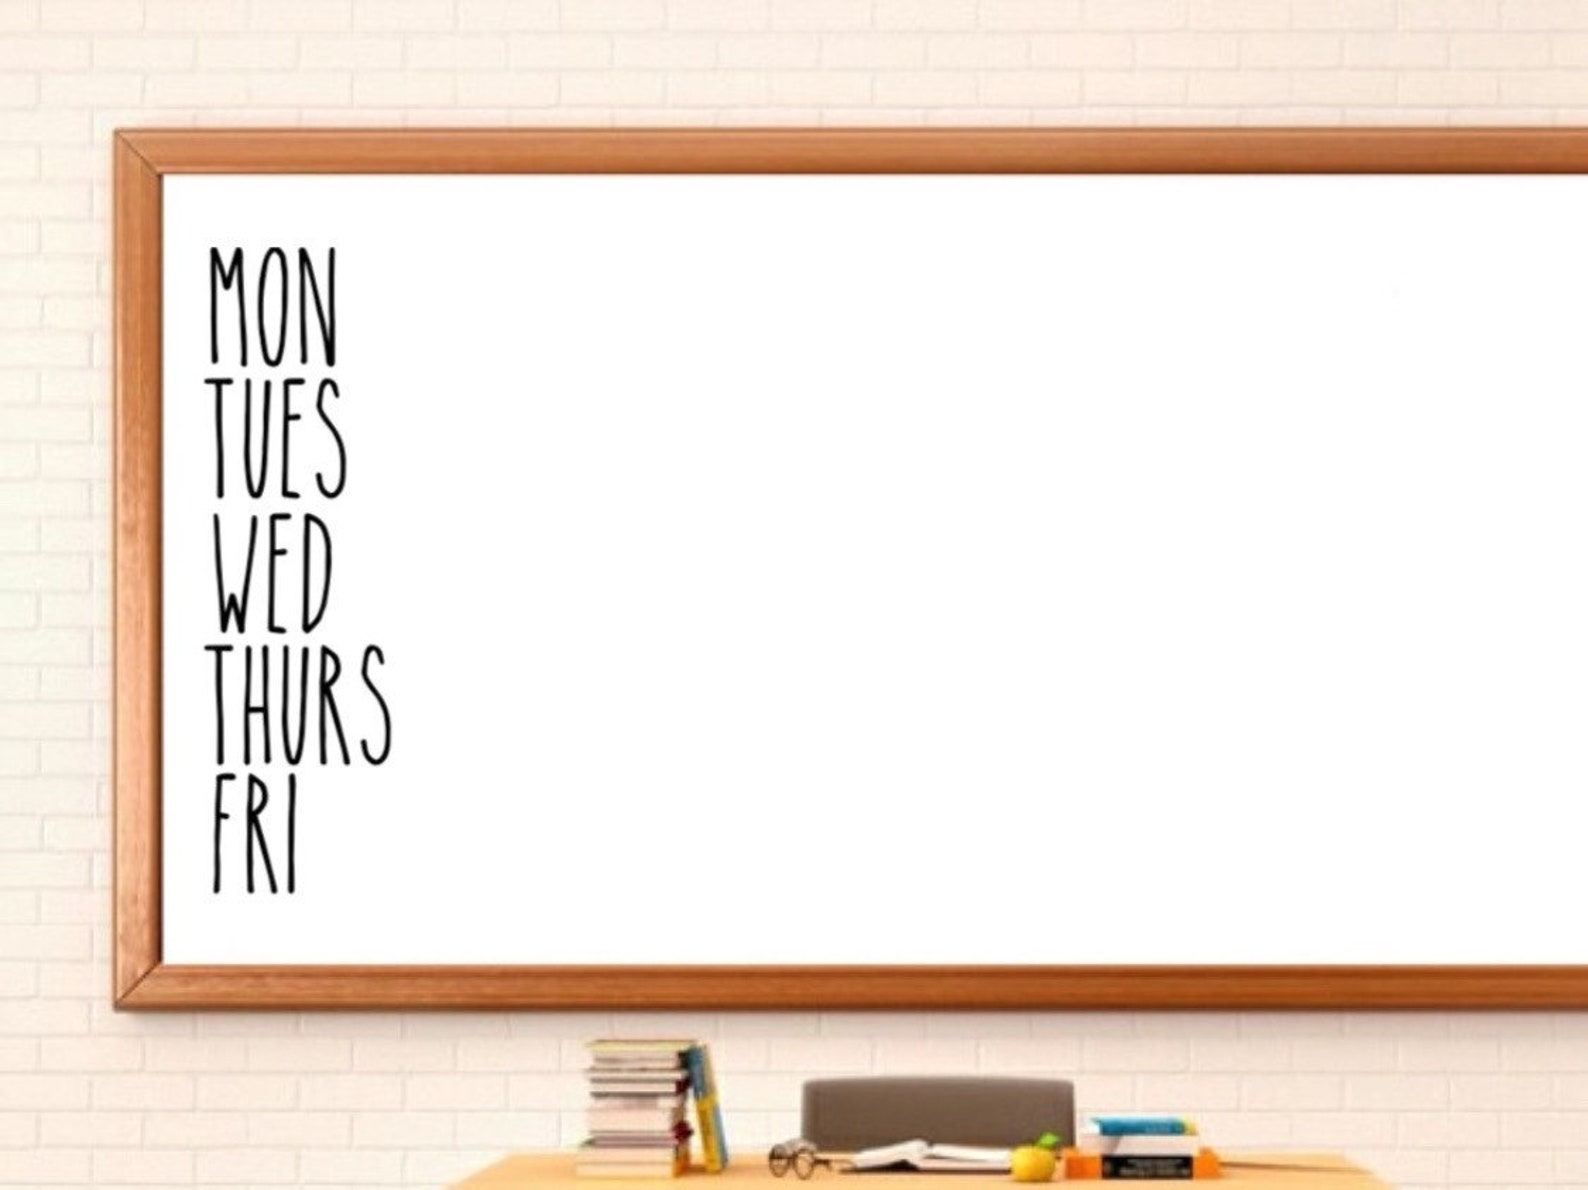 MON
TUES
WED
THURS
FRI